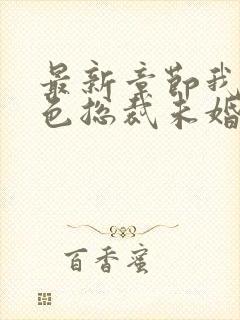 最新章节我
色总裁未婚
百香蜜